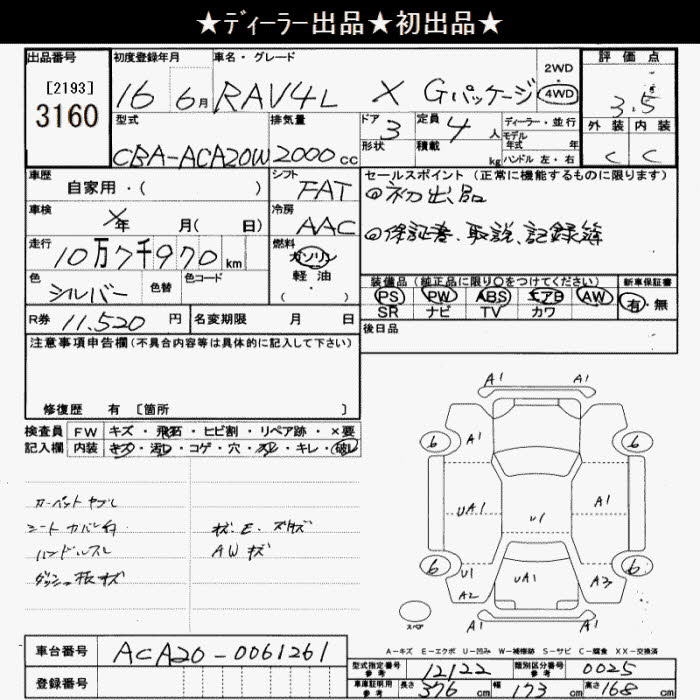 ★ディーラー出品★初出品★
出品番号 初度登録年月 車名・グレード 2WD 評価点
[2193] 3160 16年 6月 RAV4L X Gパッケージ 4WD 3.5
型式 排気量 ドア 3 定員 4人 ディーラー・並行 外装 内装
形状 積載 kg モデル年式 年
CBA-ACA20W 2000cc ハンドル 左・右 C C
車歴 シフト セールスポイント(正常に機能するものに限ります)
自家用・( ) FAT ◎初出品
車検 冷房
×年 月( 日) AAC ◎保証書、取説、記録簿
走行 燃料
10万7千970km ガソリン
軽油
( ・ )
色 色替 色コード 装備品(純正品に限り〇をつけてください) 新車保証書
シルバー PS PW ABS エアB AW 有・無
SR ナビ TV カワ
R券 11,520円 名変期限 月 日 後日品
注意事項申告欄(不具合内容等は具体的に記入して下さい)
修復歴 有 [箇所 ]
検査員 FW キズ・飛石・ヒビ割・リペア跡・×要
記入欄 内装 キズ・汚レ・コゲ・穴・スレ・キレ・破レ
カーペットヤブレ
シートカバー付 キズ、E、スリキズ
ハンドルスレ AWキズ
ダッシュ板キズ
A1 A1
6 A1 6
UA1 U1 A1
6 U1 UA1 A3 6
A2
スペア A1 A1
A-キズ E-エクボ U-凹み W-補修跡 S-サビ C-腐食 XX-交換済
車台番号 ACA20-0061261
登録番号
型式指定番号 参考 12122 類別区分番号 参考 0025
車庫証明用 参考 長さ 376cm 幅 173cm 高さ 168cm